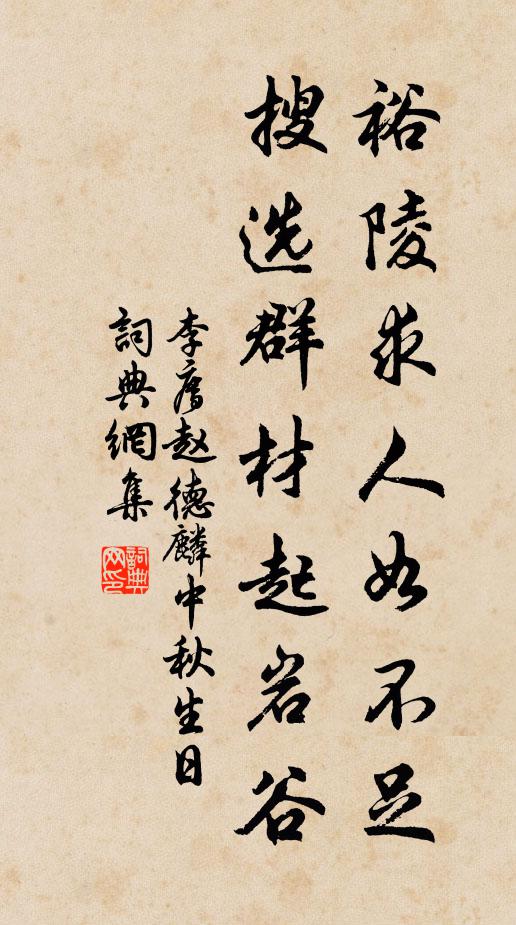 裕陵求人如不足
搜选群材起岩谷
李廌赵德麟中秋生日
詞典網集
詞典網印